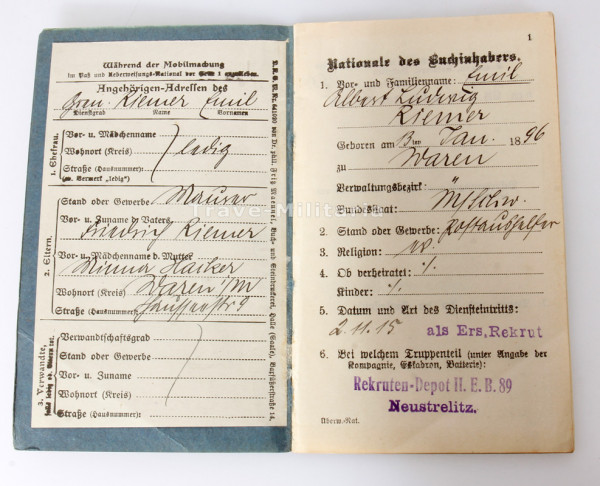 Während der Mobilmachung
im Paß und Ueberweisungs-National der Seite 1 anzukleben.
Angehörigen-Adressen des
Gren. Riemer Emil
Dienstgrad Name Vornamen
1. Ehefrau.
Vor- u. Mädchenname
Wohnort (Kreis) ledig
Straße (Hausnummer):
(ev. Vermerk „ledig")
2. Eltern.
Stand oder Gewerbe Maurer
Vor- u. Zuname d. Vaters
Friedrich Riemer
Vor- u. Mädchenname d. Mutter
Minna
Wohnort (Kreis) Waren i/M
Straße (Hausnummer)
3. Verwandte,
falls ledig od. Eltern tot.
Verwandtschaftsgrad
Stand oder Gewerbe
Vor- u. Zuname
Wohnort (Kreis)
Straße (Hausnummer):
1
Nationale des Buchinhabers.
1. Vor- und Familienname: Emil
Albert Ludwig
Riemer
Geboren am Jan. 1896
zu Waren
Verwaltungsbezirk:
Bundesstaat: M/Schw.
2. Stand oder Gewerbe: Postaushelfer
3. Religion: ev.
4. Ob verheiratet: ./.
Kinder: ./.
5. Datum und Art des Diensteintritts:
2.11.15 als Ers. Rekrut
6. Bei welchem Truppenteil (unter Angabe der
Kompagnie, Eskadron, Batterie):
Rekruten-Depot II. E. B. 89
Neustrelitz.
Überw.-Nat.